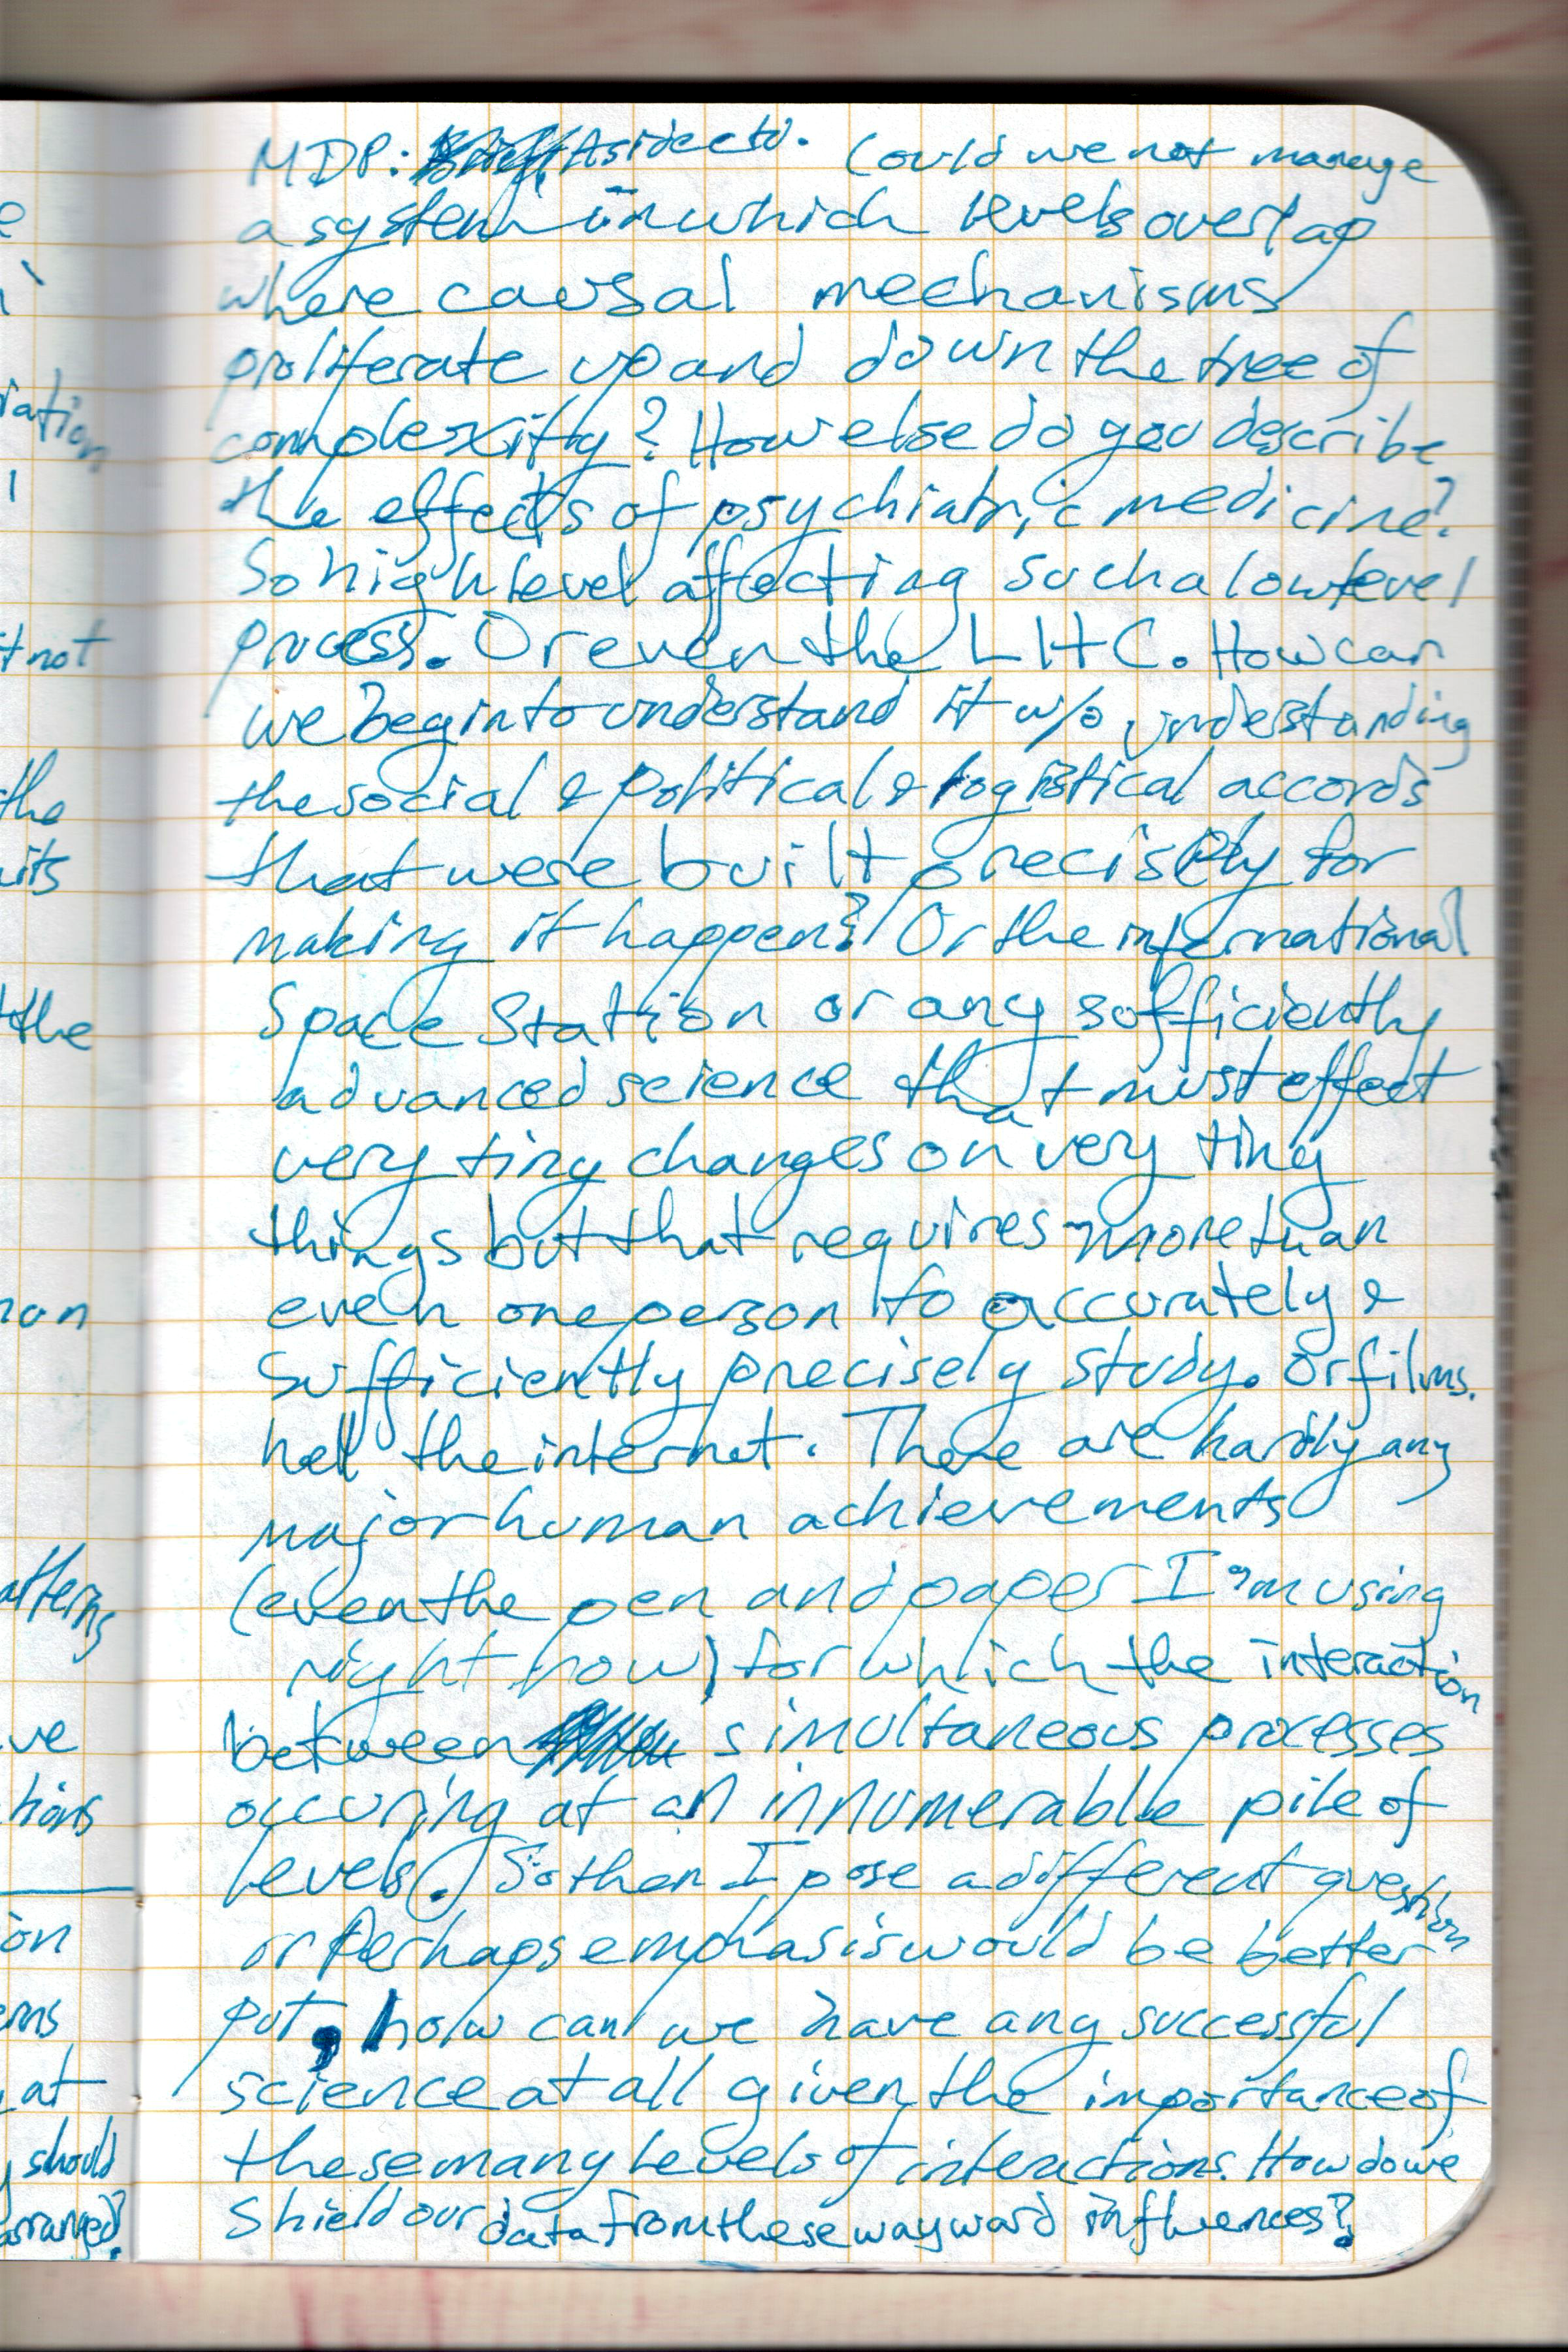 MDP: Aside cto. Could we not manage
a system in which levels overlap
where causal mechanisms
proliferate up and down the tree of
complexity? How else do you describe
the effects of psychiatric medicine?
So high level affecting such a low level
process. Or even the LHC. How can
we begin to understand it w/o understanding
the social & political & logistical accords
that were built precisely for
making it happen? Or the international
Space Station or any sufficiently
advanced science that must effect
very tiny changes on very tiny
things but that requires more than
even one person to accurately &
sufficiently precisely study. Or films.
hell the internet. There are hardly any
major human achievements
(even the pen and paper I'm using
right now) for which the interaction
between simultaneous processes
occuring at an innumerable pile of
levels. So then I pose a different question
or Perhaps emphasis would be better
put, how can we have any successful
science at all given the importance of
these many levels of interactions. How do we
shield our data from these wayward influences?
e
iation
t not
the
uits
the
atterns
ve
tions
ion
at
should
arranged?